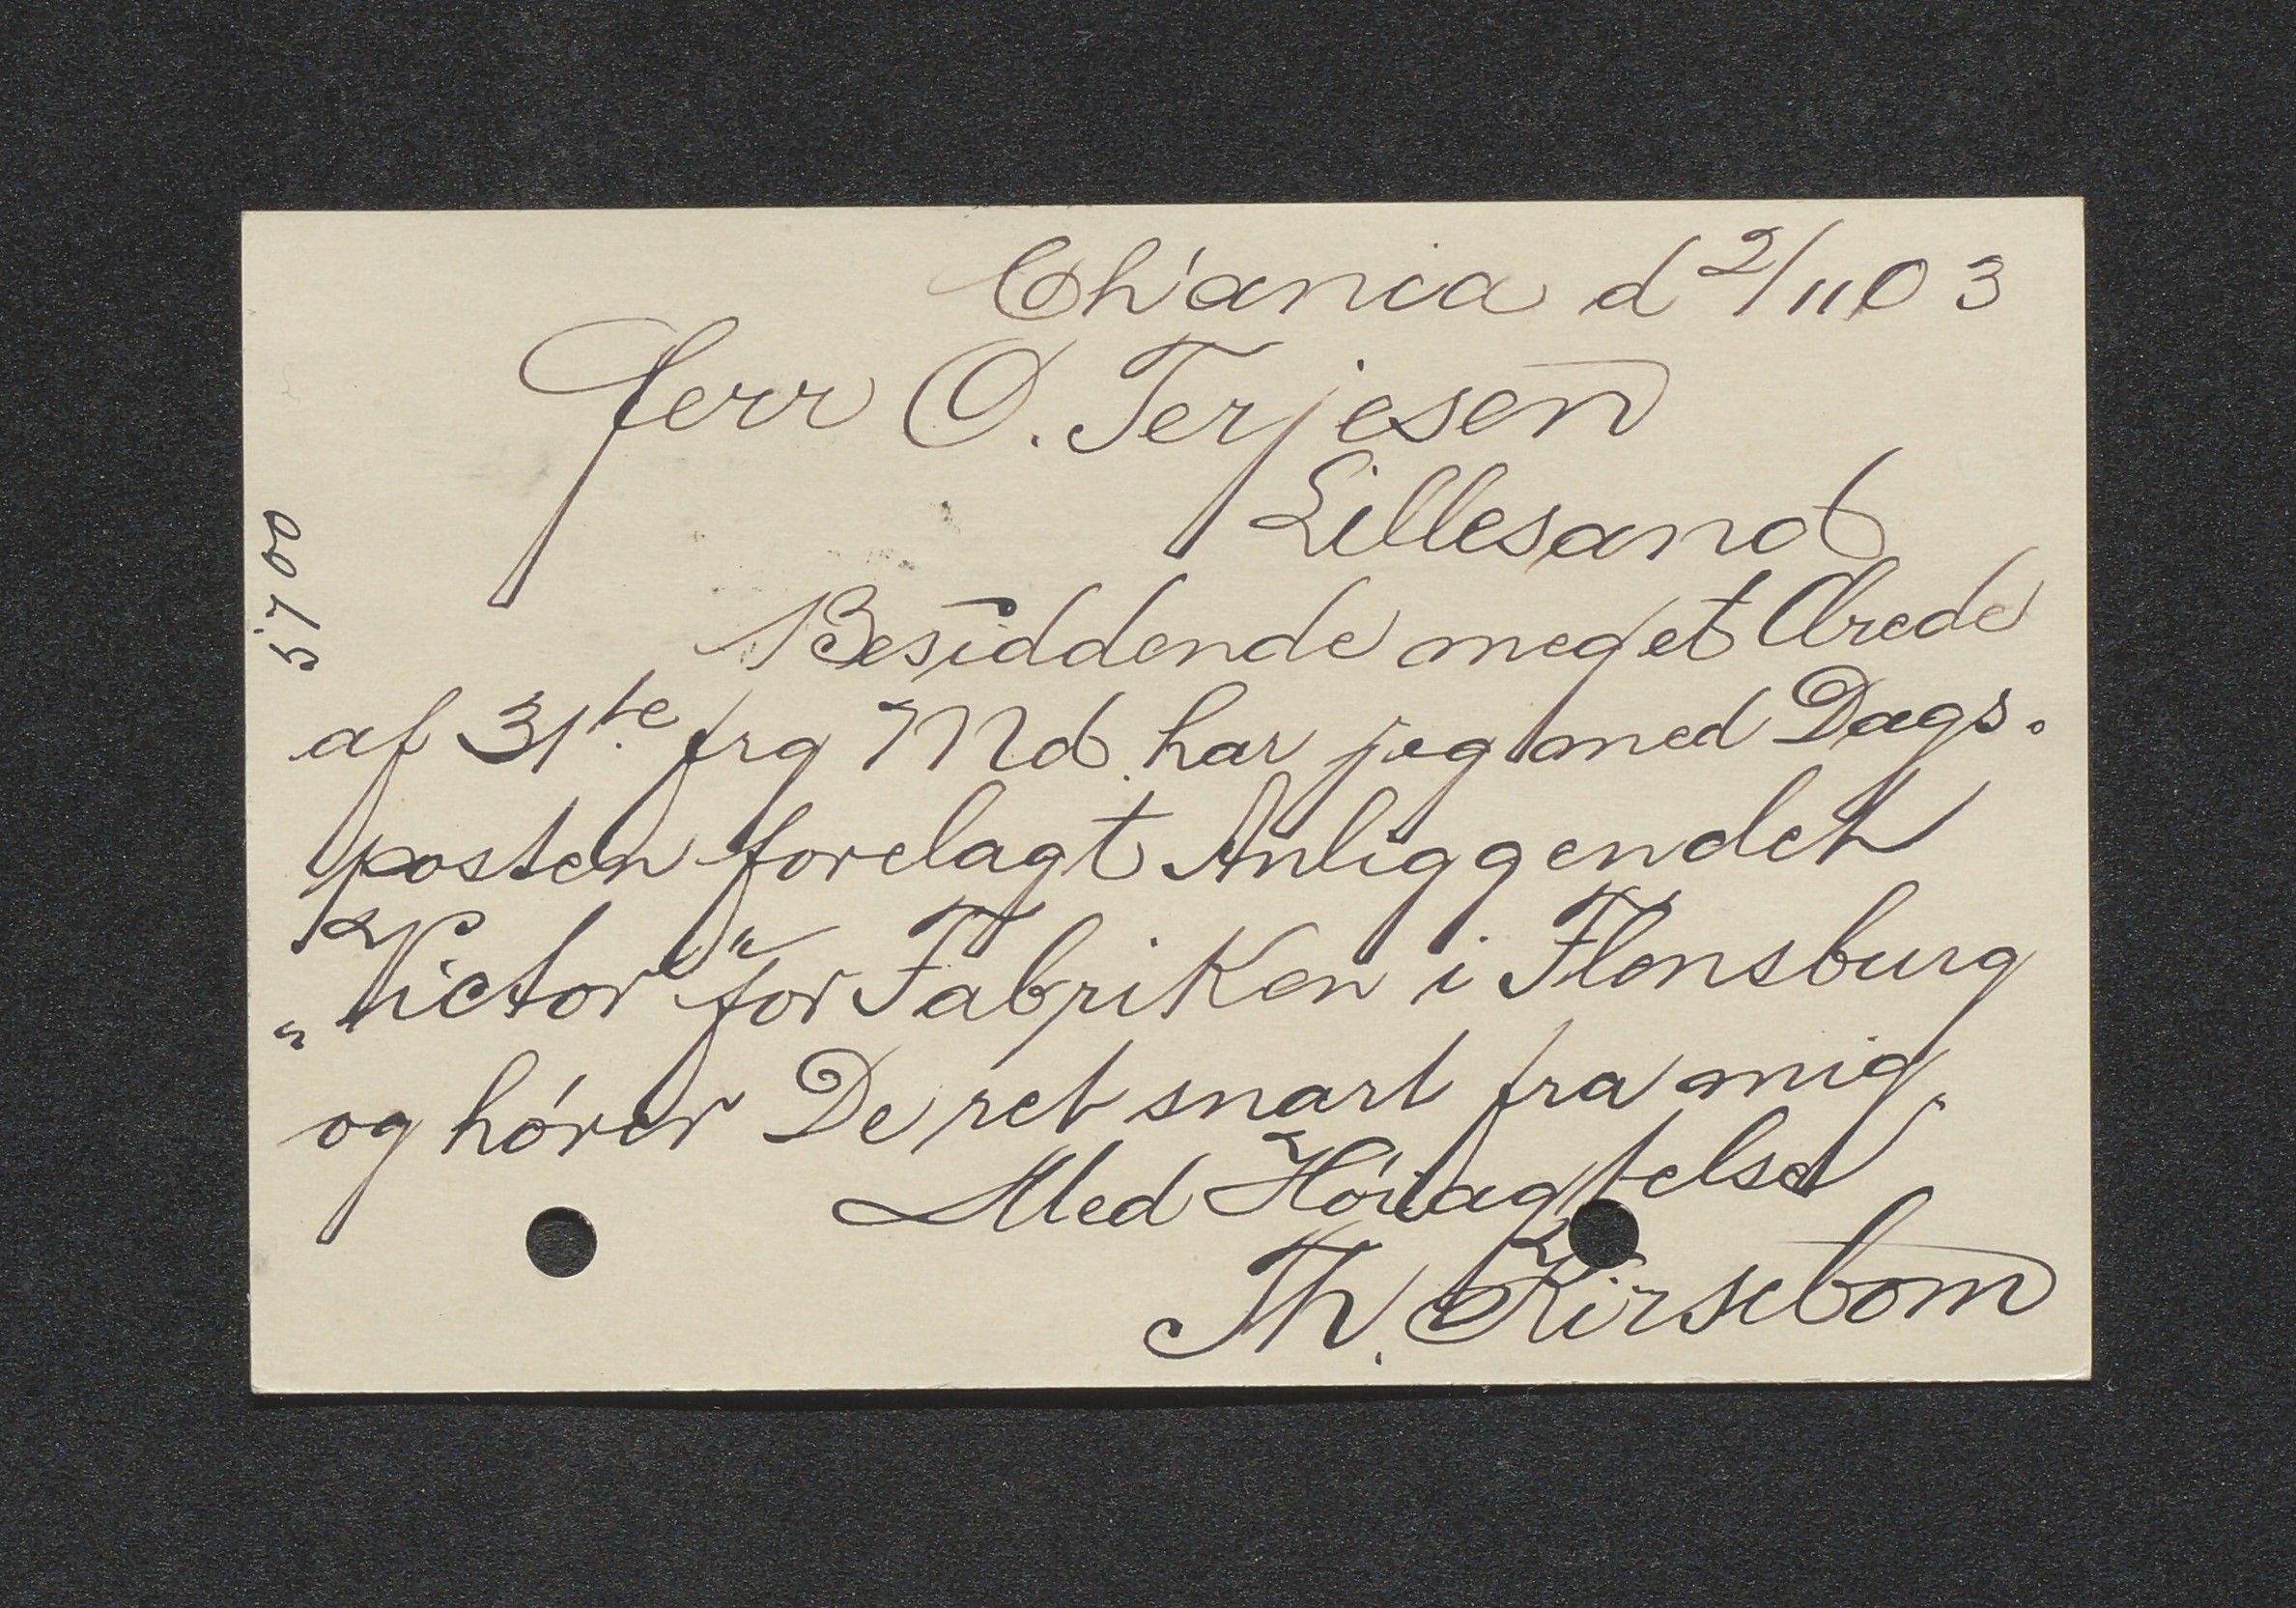 Ch'ania d 2/11 03
Herr O. Terjesen
Lillesand
Besiddende meget Ærede
af 31te frg Md. har jeg med Dags-
posten forelagt Anliggendet
"Victor" for Fabriken i Flensburg
og hører De ret snart fra mig.
Med Höiagtelse
Th. Kirsebom
5700